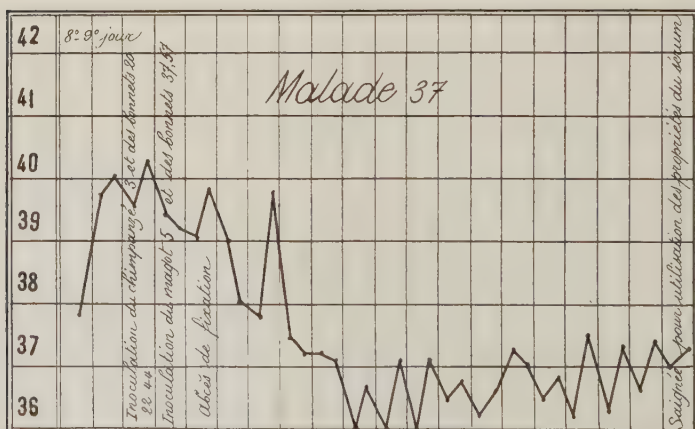 42
41
40
39
38
37
36
8e 9e jour
Malade 37
Inoculation du chimpanzé 3 et des bonnets 20
22 44
Inoculation du magot 5 et des bonnets 37,57
Abcès de fixation
Saignée pour utilisation des propriétés du sérum